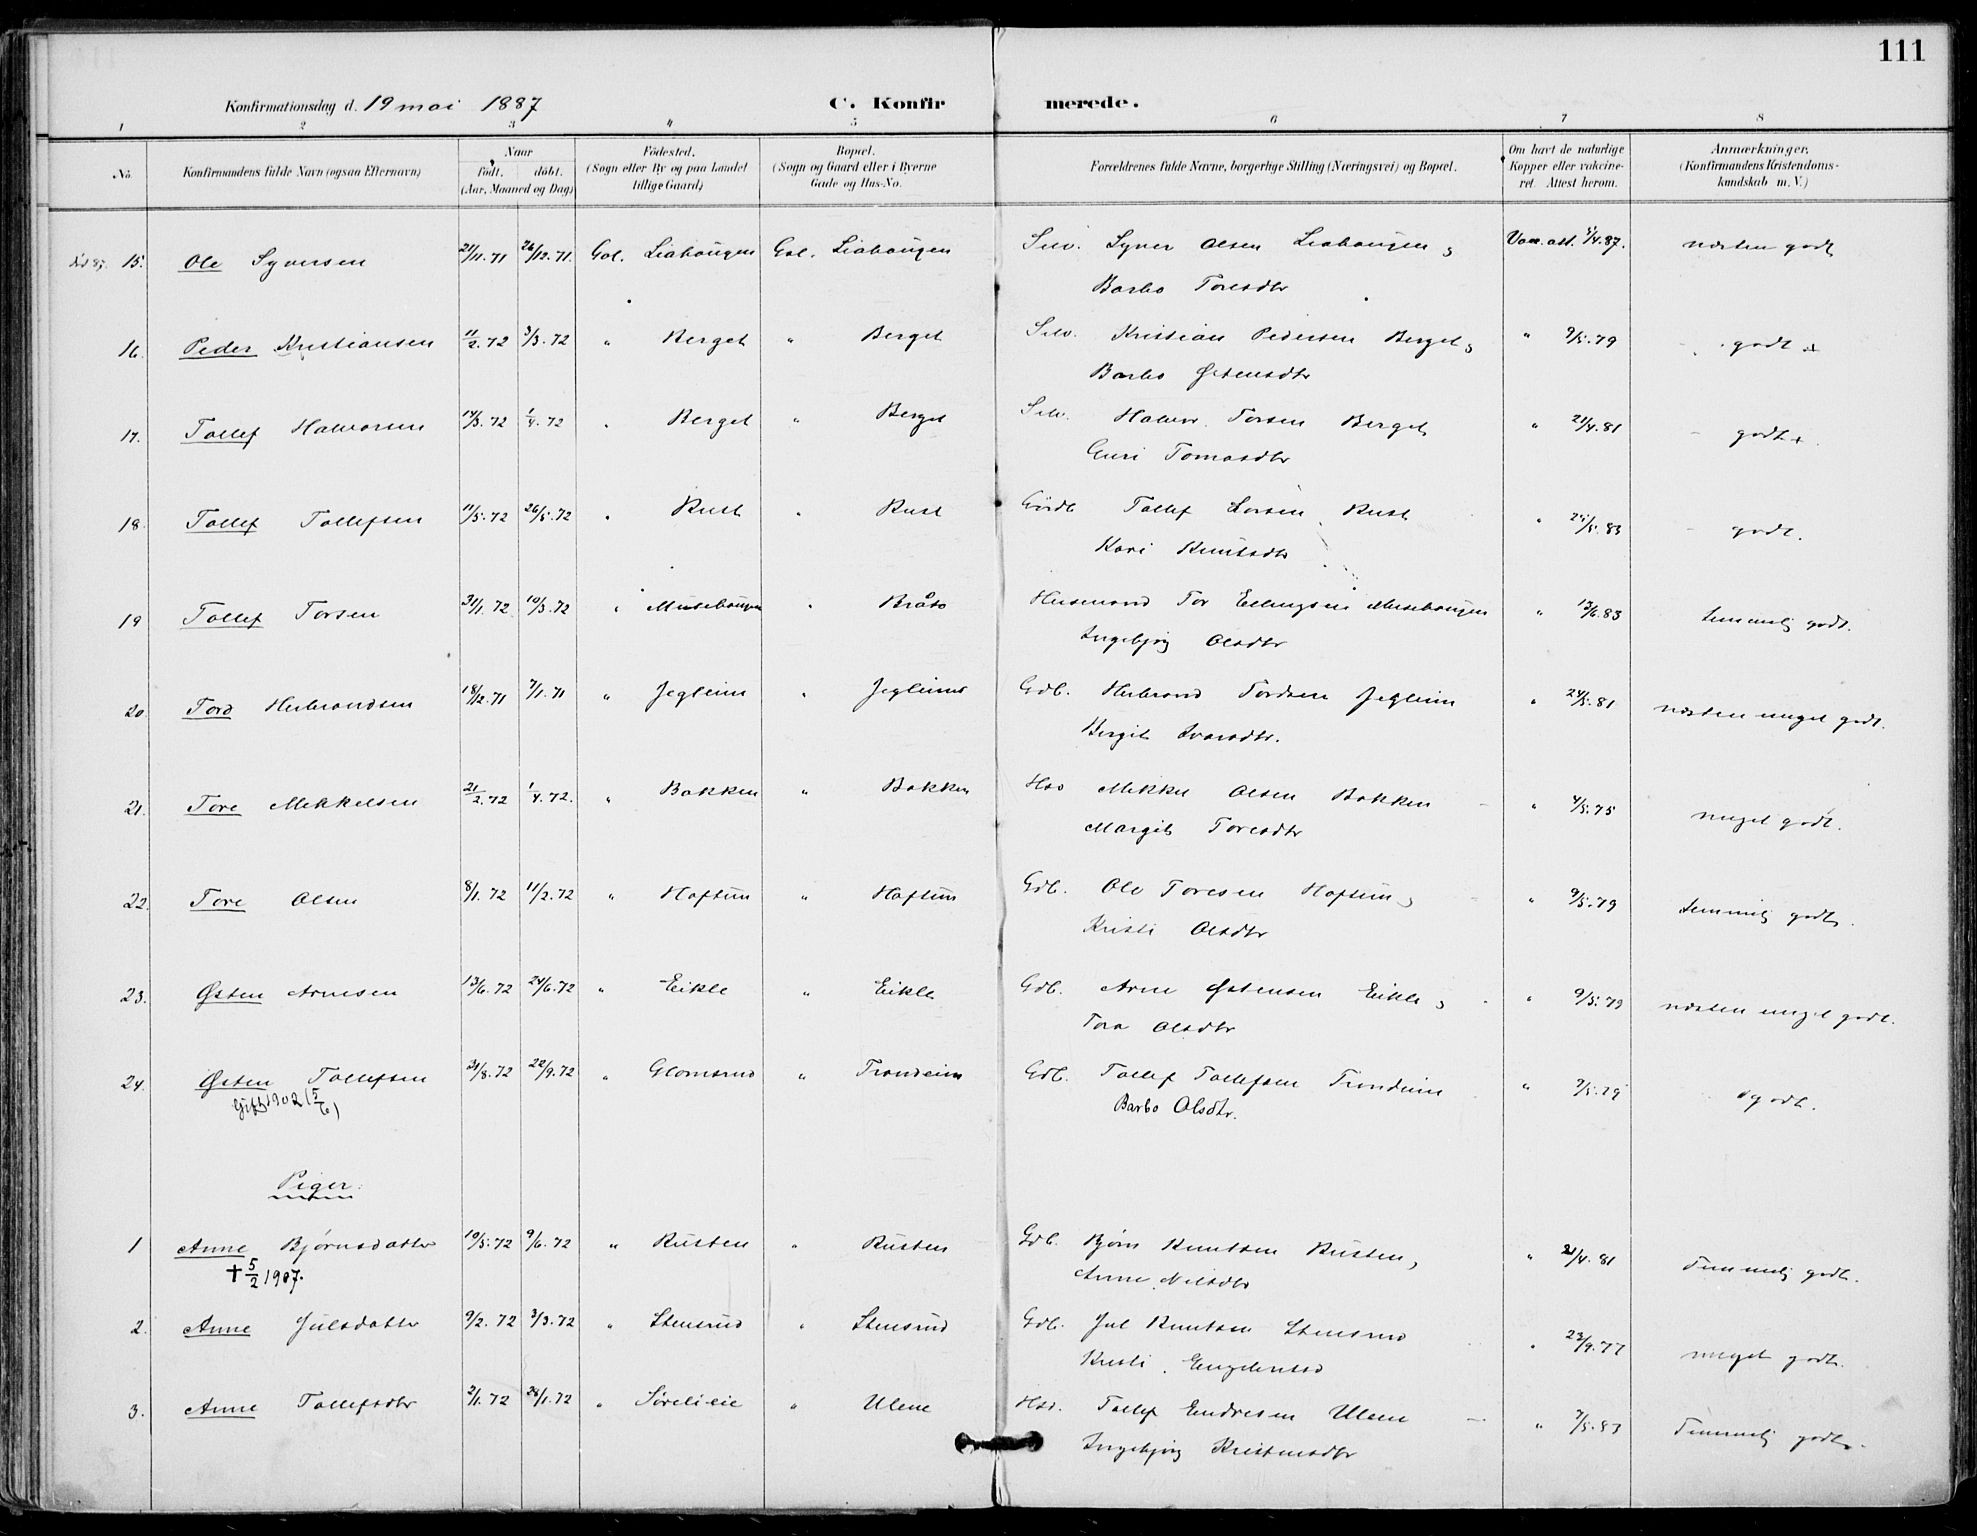 111
Konfirmationsdag d. 19 mai 1887 C. Konfirmerede.
1 2 3 4 5 6 7 8
No. Konfirmandens fulde Navn (ogsaa Efternavn) Naar født. døbt. (Aar, Maaned og Dag) Fødested. (Sogn eller By og paa Landet tillige Gaard) Bopæl. (Sogn og Gaard eller i Byerne Gade og Hus-No. Forældrenes fulde Navne, borgerlige Stilling (Næringsvei) og Bopæl. Om havt de naturlige Kopper eller vakcineret. Attest herom. Anmærkninger. (Konfirmandens Kristendomskundskab m. V.)
15. Ole Syversen 21/11.71 26/12.71. Gol. Liahaugen Gol. Liahaugen Selv. Syver Olsen Liahaugen, Vac. att. /4.87. næsten godt
Barbo Toresdtr
16. Peder Kristiansen 11/2.72 3/3.72 " Berget " Berget Selv. Kristian Pedersen Berget, " 9/5.79 godt +
Barbo Østensdtr
17. Tollef Halvorsen 14/3.72 1/4.72 " Berget " Berget Selv. Halvor Torsen Berget " 21/4.81 godt +
Guri Tomasdtr
18. Tollef Tollefsen 11/5.72 26/5.72 " Rust " Rust Gårdb. Tollef Larsen Rust " 25/5.83 godt.
Kari Knutsdtr
19 Tollef Torsen 31/1.72 10/3.72 " Musehaugen " Bråto Husmand Tor Ellingsen Musehaugen " 13/6.83 temmelig godt.
Ingebjørg Olsdtr
20 Tord Herbrandsen 18/12.71 7/1.71 " Jegleim " Jegleim Gdb. Herbrand Tordsen Jegleim " 24/5.81 næsten meget godt.
Birgit Ivarsdtr.
21. Tore Mikkelsen 21/2.72 1/4.72. " Bakken " Bakken Hus Mikkel Olsen Bakken " 4/5.75 meget godt.
Margit Toresdtr
22. Tore Olsen 8/1.72 11/2.72 " Haftun " Haftun Gdb. Ole Toresen Haftun, " 9/5.79 temmelig godt.
Kristi Olsdtr
23. Østen Arnesen 13/6.72 24/6.72 " Eikle " Eikle Gdb. Arne Østensen Eikle, " 9/5.79 næsten meget godt.
Tora Olsdtr
24. Østen Tollefsen 31/8.72 22/9.72 " Glomsrud " Trondeim Gdb. Tollef Tollefsen Trondeim " 9/5.79 godt.
Gift 1902 (5/6) Barbo Olsdtr.
Piger:
1 Anne Bjørnsdatter 10/5.72 9/6.72 " Rusten " Rusten Gdb. Bjørn Knutsen Rusten, " 21/4.81 Temmelig godt.
† 5/2 1907. Anne Nilsdtr
2. Anne Julsdatter 9/2.72 3/3.72 " Stensrud " Stensrud Gdb. Jul Knutsen Stensrud " 23/9.77 meget godt.
Kristi
3. Anne Tollefsdtr 2/1.72 28/1.72 " Sørelieie " Ulene Hus. Tollef Endresen Ulene " 7/5.83 Temmelig godt.
Ingebjørg Kristensdtr